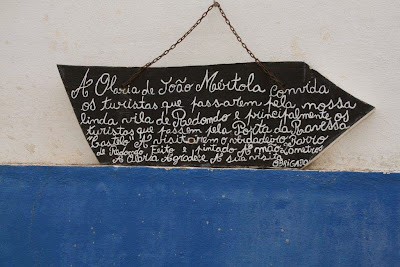 A Olaria de João Mértola Convida
os turistas que passarem pela nossa
linda vila de Redondo e principalmente os
turistas que passem pela Porta da Ravessa
Castelo A visitarem o verdadeiro Barro
de Redondo Feito e pintado A mão
A Olaria Agradece A sua visita
OBRIGADO